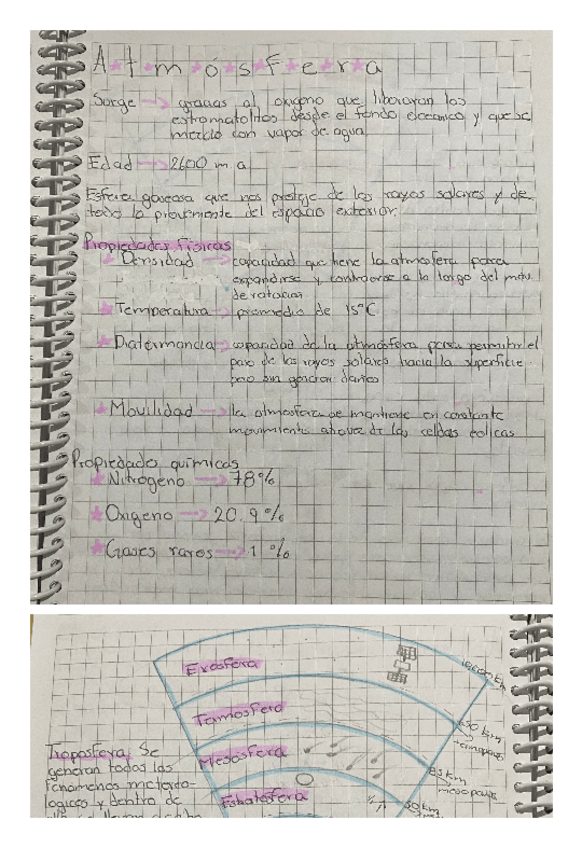 Atmósfera
Surge → gracias al oxigeno que liberaron los
estromatolitos desde el fondo oceanico y que se
mezclo con vapor de agua
Edad → 2600 m.a
Esfera gaseosa que nos proteje de los rayos solares y de
todo lo proveniente del espacio exterior.
Propiedades Físicas
Densidad → capacidad que tiene la atmosfera para
expandirse y contraerse a lo largo del mov.
de rotacion
Temperatura → promedio de 15°C
Diatermancia → capacidad de la atmosfera para permitir el
paso de los rayos solares hacia la superficie
pero sin generar daños
Movilidad → la atmosfera se mantiene en constante
movimiento atraves de las celdas eolicas
Propiedades quimicas
Nitrogeno → 78%
Oxigeno → 20.9%
Gases raros → 1%
Exosfera
Termosfera
Mesosfera
Estratosfera
85 km
mesopausa
50 km
Troposfera. Se
generan todos los
fenomenos meteoro-
logicos y dentro de